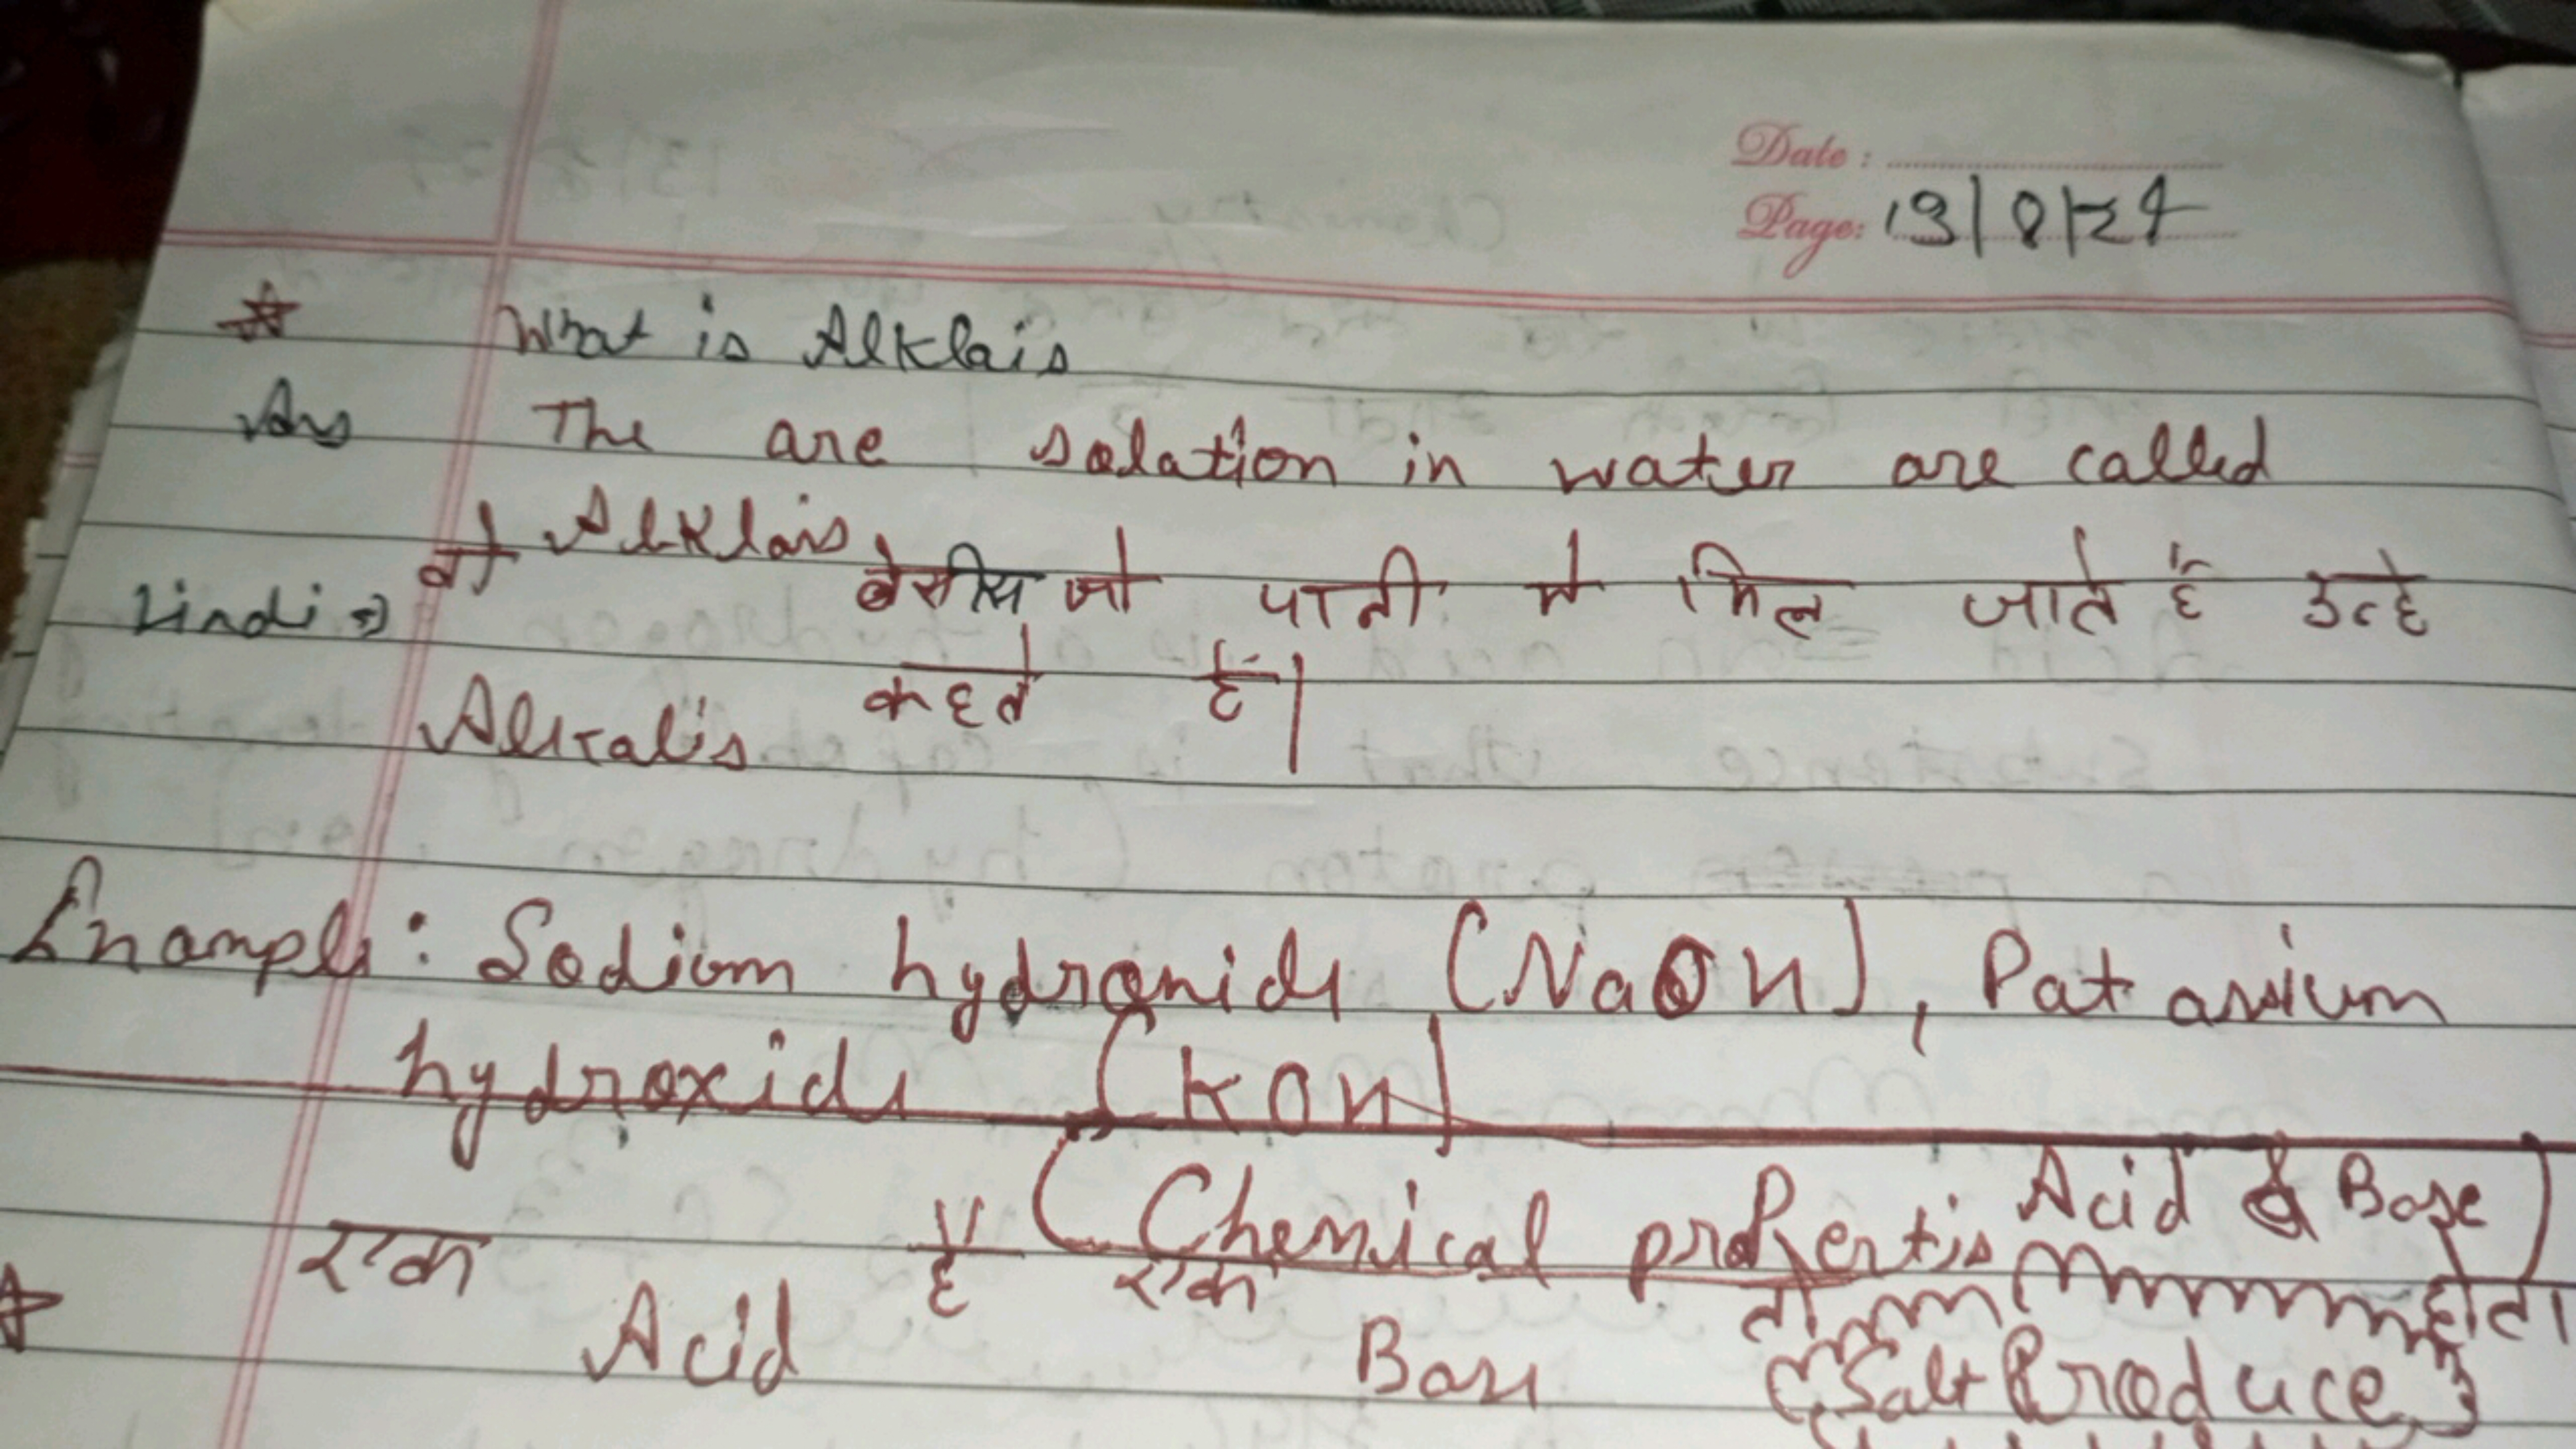 Date :
Page: 13/8/24
What is Alklais
Ans The are solation in water are called
Alklais
Hindi => वो बेसीस जो पानी मे मिल जाते हैं उन्हे
Alkalis कहते हैं।
Example: Sodium hydroxide (NaOH), Patassium
hydroxide (KOH)
(Chemical properties Acid & Base)
एक Acid है एक Base तो होता
(Salt Produce)